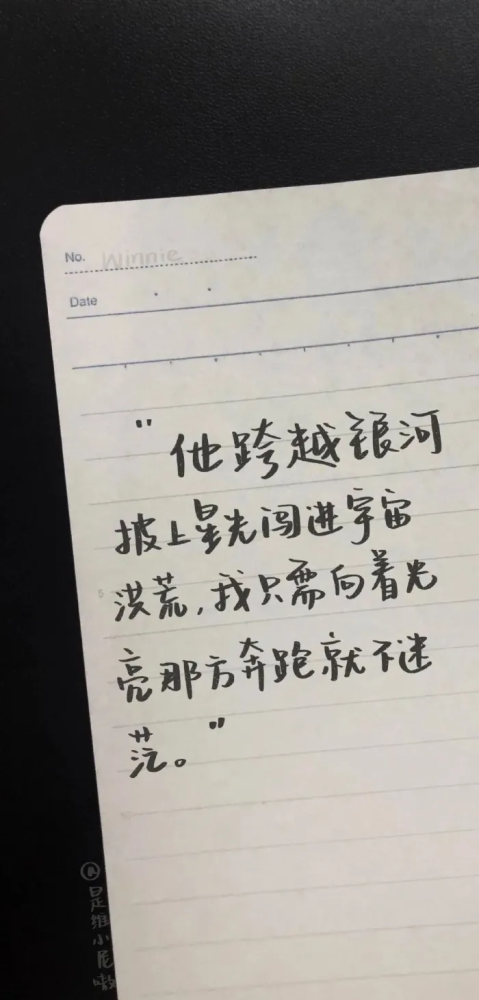 No. Winnie
Date
"他跨越银河
披上星光闯进宇宙
洪荒,我只需向着光
亮那方奔跑就不迷
茫。"
@是维小尼嗷